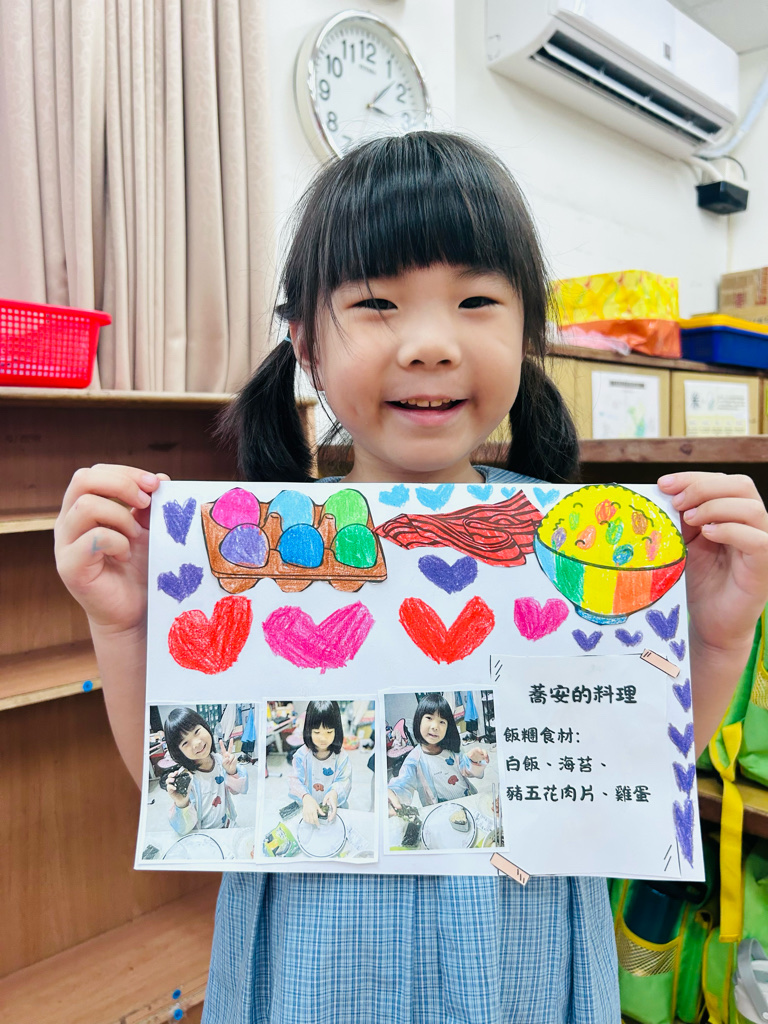 蕎安的料理
飯糰食材:
白飯、海苔、
豬五花肉片、雞蛋
11 12 1
10 2
9
8